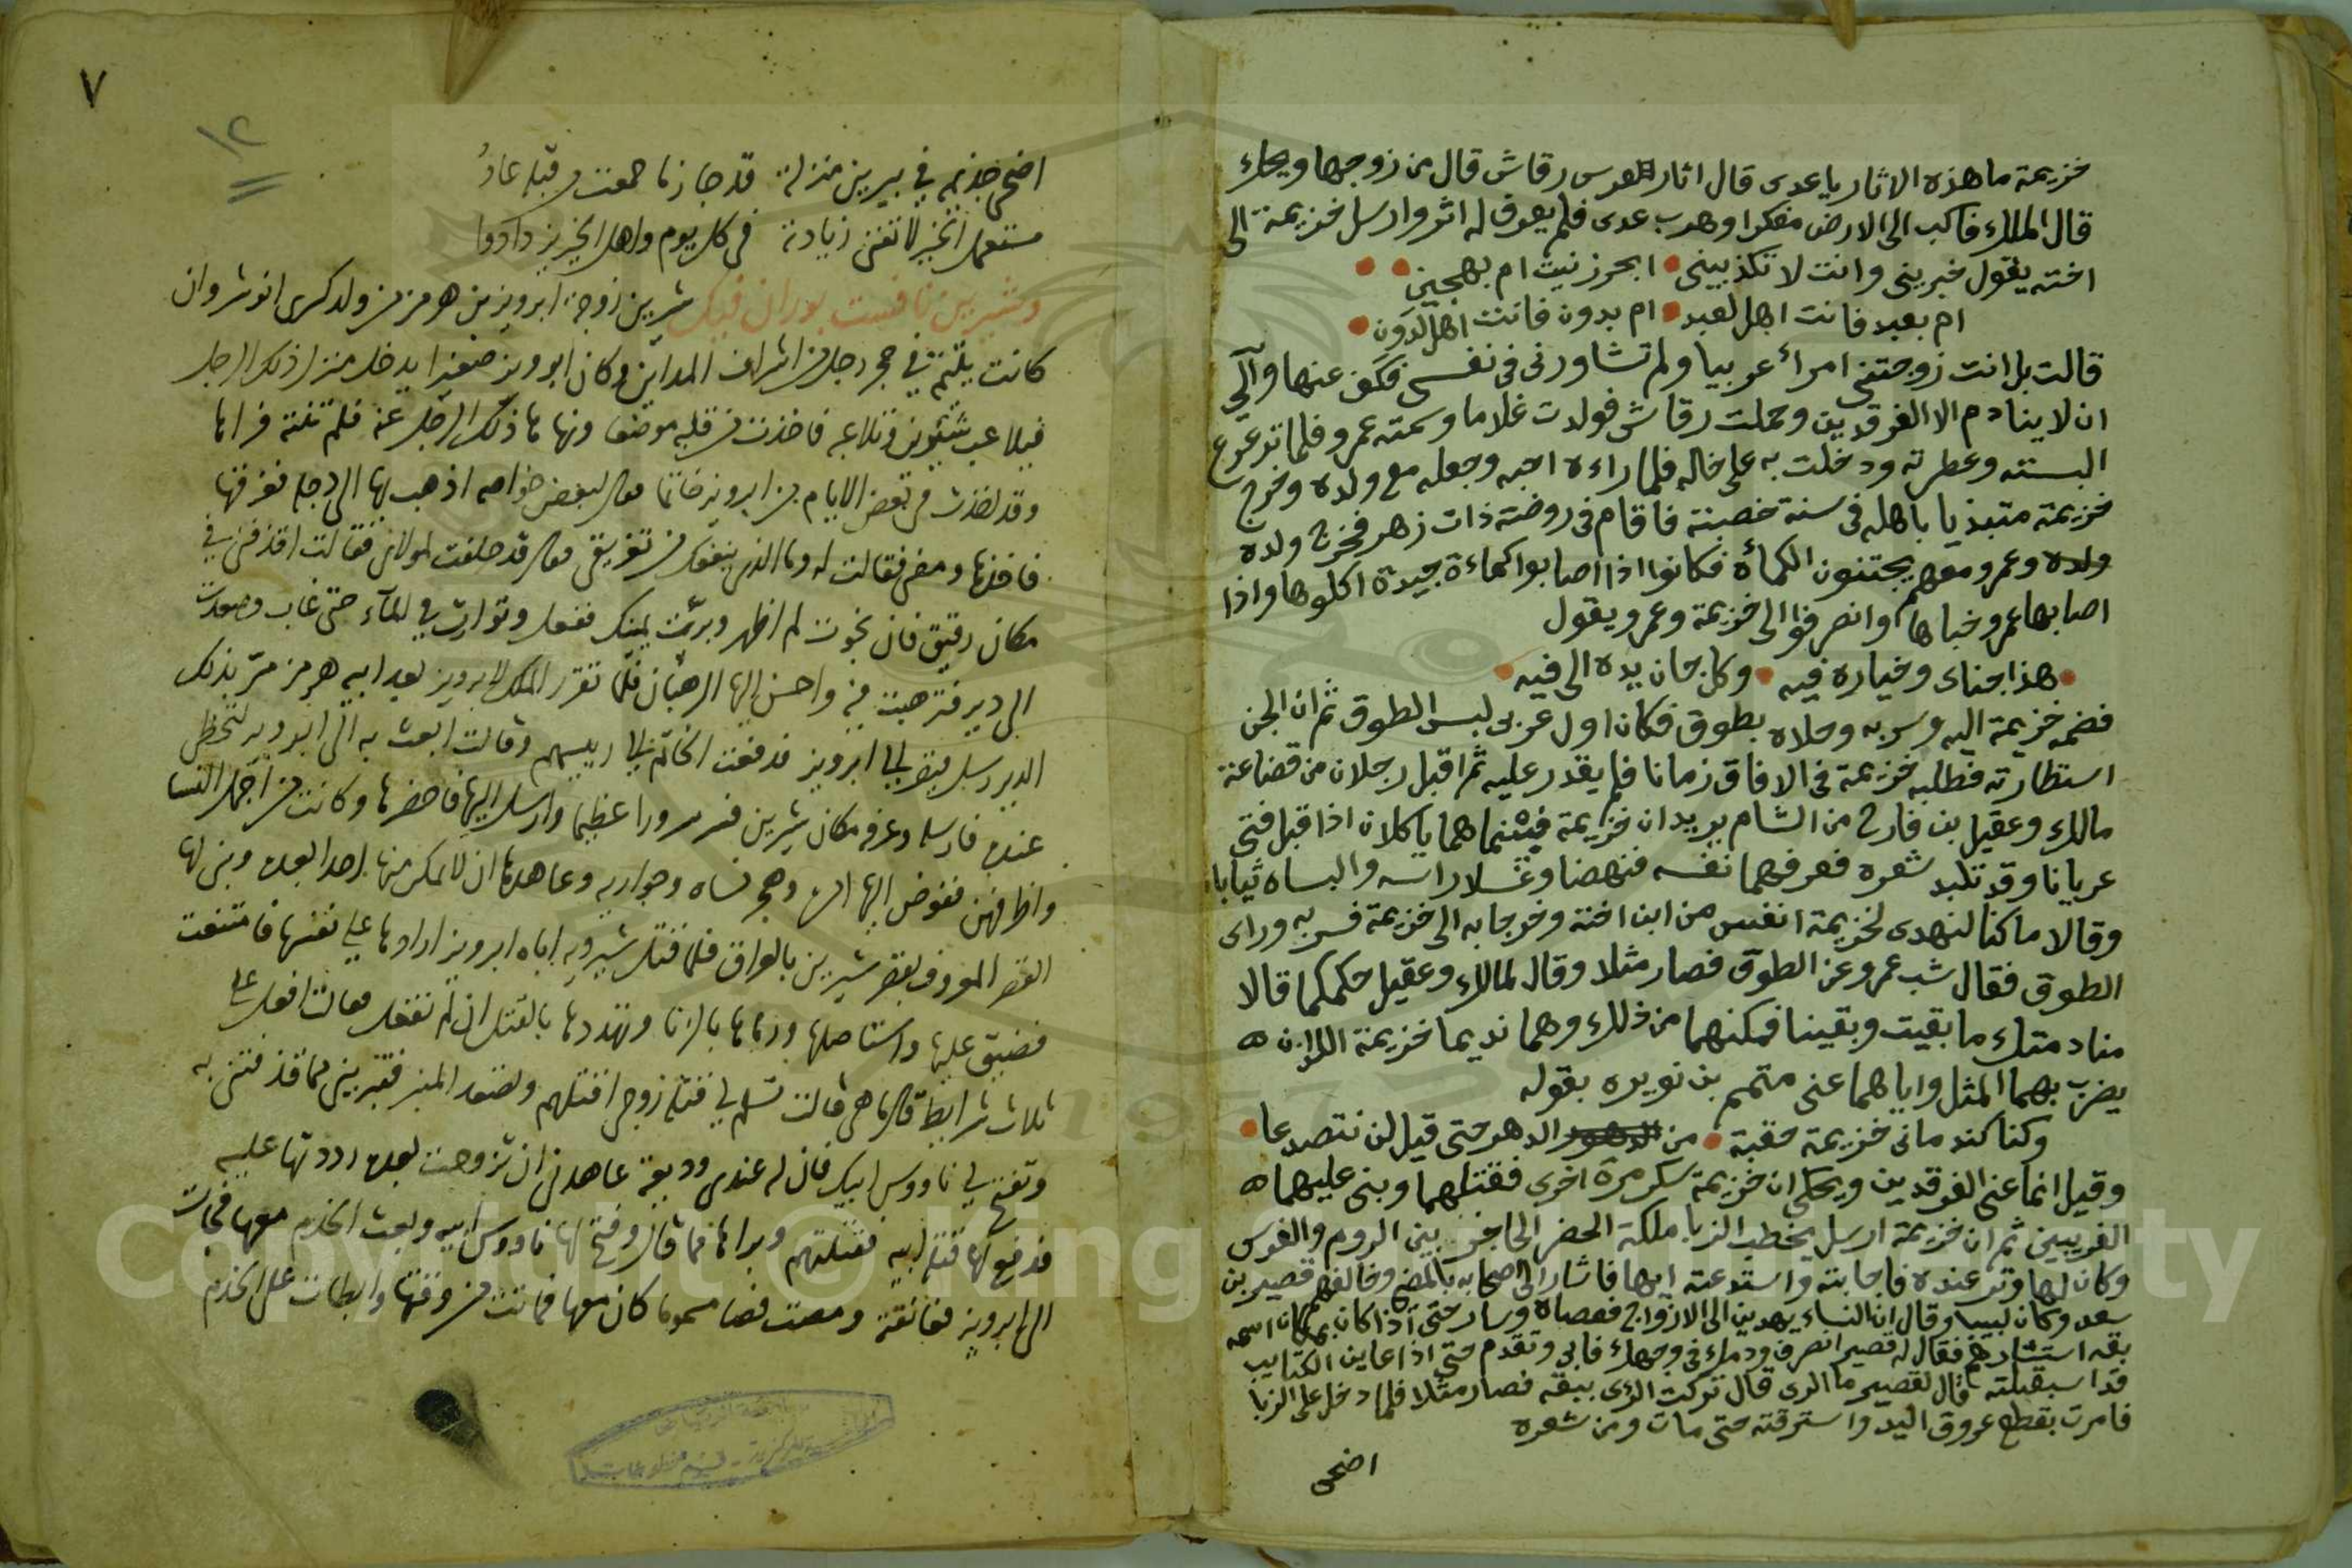 خزيمة ما هذه الاثار يا عدى قال اثار العرس رقاش قال من زوجها ويحك
قال الملك فاكب الى الارض مفكرا وهرب عدى فلم يعرف له اثر وارسل خزيمة الى
اخته يقول خبرينى وانت لا تكذبينى ابحر زنيت ام بهجين
ام بعبد فانت اهل لعبد ام بدون فانت اهل لدون
قالت بل انت زوجتنى امرأ عربيا ولم تشاورنى فى نفسى فكف عنها وآلى
ان لا ينادم الا الفرقدين وحملت رقاش فولدت غلاما وسمته عمرو فلما ترعرع
البسته وعطرته ودخلت به على خاله فلما راءه احبه وجعله مع ولده وخرج
خزيمة متبديا باهله فى سنة خصبة فاقام فى روضة ذات زهر فخرج ولده
ولده وعمرو معهم يجتنون الكمأة فكانوا اذا اصابوا كماءة جيدة اكلوها واذا
اصابها عمرو خباها وانصرفوا الى خزيمة وعمرو يقول
هذا جناى وخياره فيه وكل جان يده الى فيه
فضمه خزيمة اليه وسر به وحلاه بطوق فكان اول عربى لبس الطوق ثم ان الجن
استطارته فطلبه خزيمة فى الافاق زمانا فلم يقدر عليه ثم اقبل رجلان من قضاعة
مالك وعقيل بن فارج من الشام يريدان خزيمة فبينما هما ياكلان اذا قبل فتى
عريانا وقد تلبد شعره فعرفهما نفسه فنهضا وغسلا راسه والبساه ثيابا
وقالا ما كنا لنهدى لخزيمة انفس من ابن اخته وخرجا به الى خزيمة فسر به وراى
الطوق فقال شب عمرو عن الطوق فصار مثلا وقال لمالك وعقيل حكمكما قالا
منادمتك ما بقيت وبقينا فمكنهما من ذلك وهما نديما خزيمة اللذان
يضرب بهما المثل واياهما عنى متمم بن نويره بقوله
وكنا كندمانى خزيمة حقبة من الدهور الدهر حتى قيل لن نتصدعا
وقيل انما عنى الفرقدين ويحكى ان خزيمة سكر مرة اخرى فقتلهما وبنى عليهما
الغريبين ثم ان خزيمة ارسل يخطب الزبا ملكة الحضر الحاجز بين الروم والفرس
وكان لها وتر عنده فاجابته واستدعته اليها فاشار الى اصحابه بالمضى وخالفهم قصير بن
سعد وكان لبيبا وقال ان النساء يهدين الى الازواج فعصاه وسار حتى اذا كان بمكان اسمه
بقه استشارهم فقال له قصير انصرف ودمك فى وجهك فابى وتقدم حتى اذا عاين الكتايب
قد استقبلته قال لقصير ما الرى قال تركت الرى ببقه فصار مثلا فلما دخل على الزبا
فامرت بقطع عروق اليد واستنزفته حتى مات ومن شعره
اضحى
٧
١٢
اضحى خذيمه فى يبرين منزلة قد حاز ما جمعت قبله عادُ
مستعمل الخير لا تفنى زيادته فى كل يوم واهل الخير تزداد
وشيرين نافست بوران فيك شيرين زوجة ابرويز بن هرمز من ولد كسرى انوشروان
كانت يتيمة فى حجر رجل من اشراف المداين وكان ابرويز صغيرا يدخل منزل ذلك الرجل
فيلاعب شيرين وتلاعبه فاخذت من قلبه موضعا ونهاها ذلك الرجل عنه فلم تنته فراها
وقد اخذت فى بعض الايام من ابرويز خاتما فقال لبعض خواصه اذهب بها الى دجلة فغرقها
فاخذها ومضى فقالت له وما الذى ينفعك من تغريقى فقال قد حلفت لمولاى فقالت اقذفنى فى
مكان رقيق فان نجوت لم اظهر وبرّت يمينك ففعل وتوارت فى الماء حتى غاب وصعدت
الى دير فترهبت فيه واحسن اليها الرهبان فلما تقرر الملك لابرويز بعد ابيه هرمز مرّ بذلك
الدير رسل قيصر الى ابرويز فدفعت الخاتم الى رييسهم وقالت ابعث به الى ابرويز لتحظى
عنده فارسله وعرفه مكان شيرين فسر سرورا عظيما وارسل اليها فاحضرها وكانت من اجمل النسا
واظرفهن ففوض اليها امره وهجر نساه وجواريه وعاهدها ان لا تمكن منها احدا بعده وبنى لها
القصر المعروف بقصر شيرين بالعراق فلما قتل شيرويه اباه ابرويز اراودها على نفسها فامتنعت
فضيق عليها واستاصلها ورماها بالزنا وتهددها بالقتل ان لم تفعل فقالت افعل على
ثلاث شرايط قال ما هى قالت تسلم لى قتلة زوجى اقتلهم وتصعد المنبر فتبرينى مما قذفتنى به
وتفتح لى ناووس ابيك فان له عندى وديعة عاهدنى ان تزوجت بعده رددتها عليه
فدفع لها قتلة ابيه فقتلتهم وبراها مما قال وفتح لها ناووس ابيه وبعث الخدم معها فجات
الى ابرويز فعانقته ومصت فصا مسموما كان معها فماتت من وقتها وابطات على الخدم
Copyright © King Saud University
1957